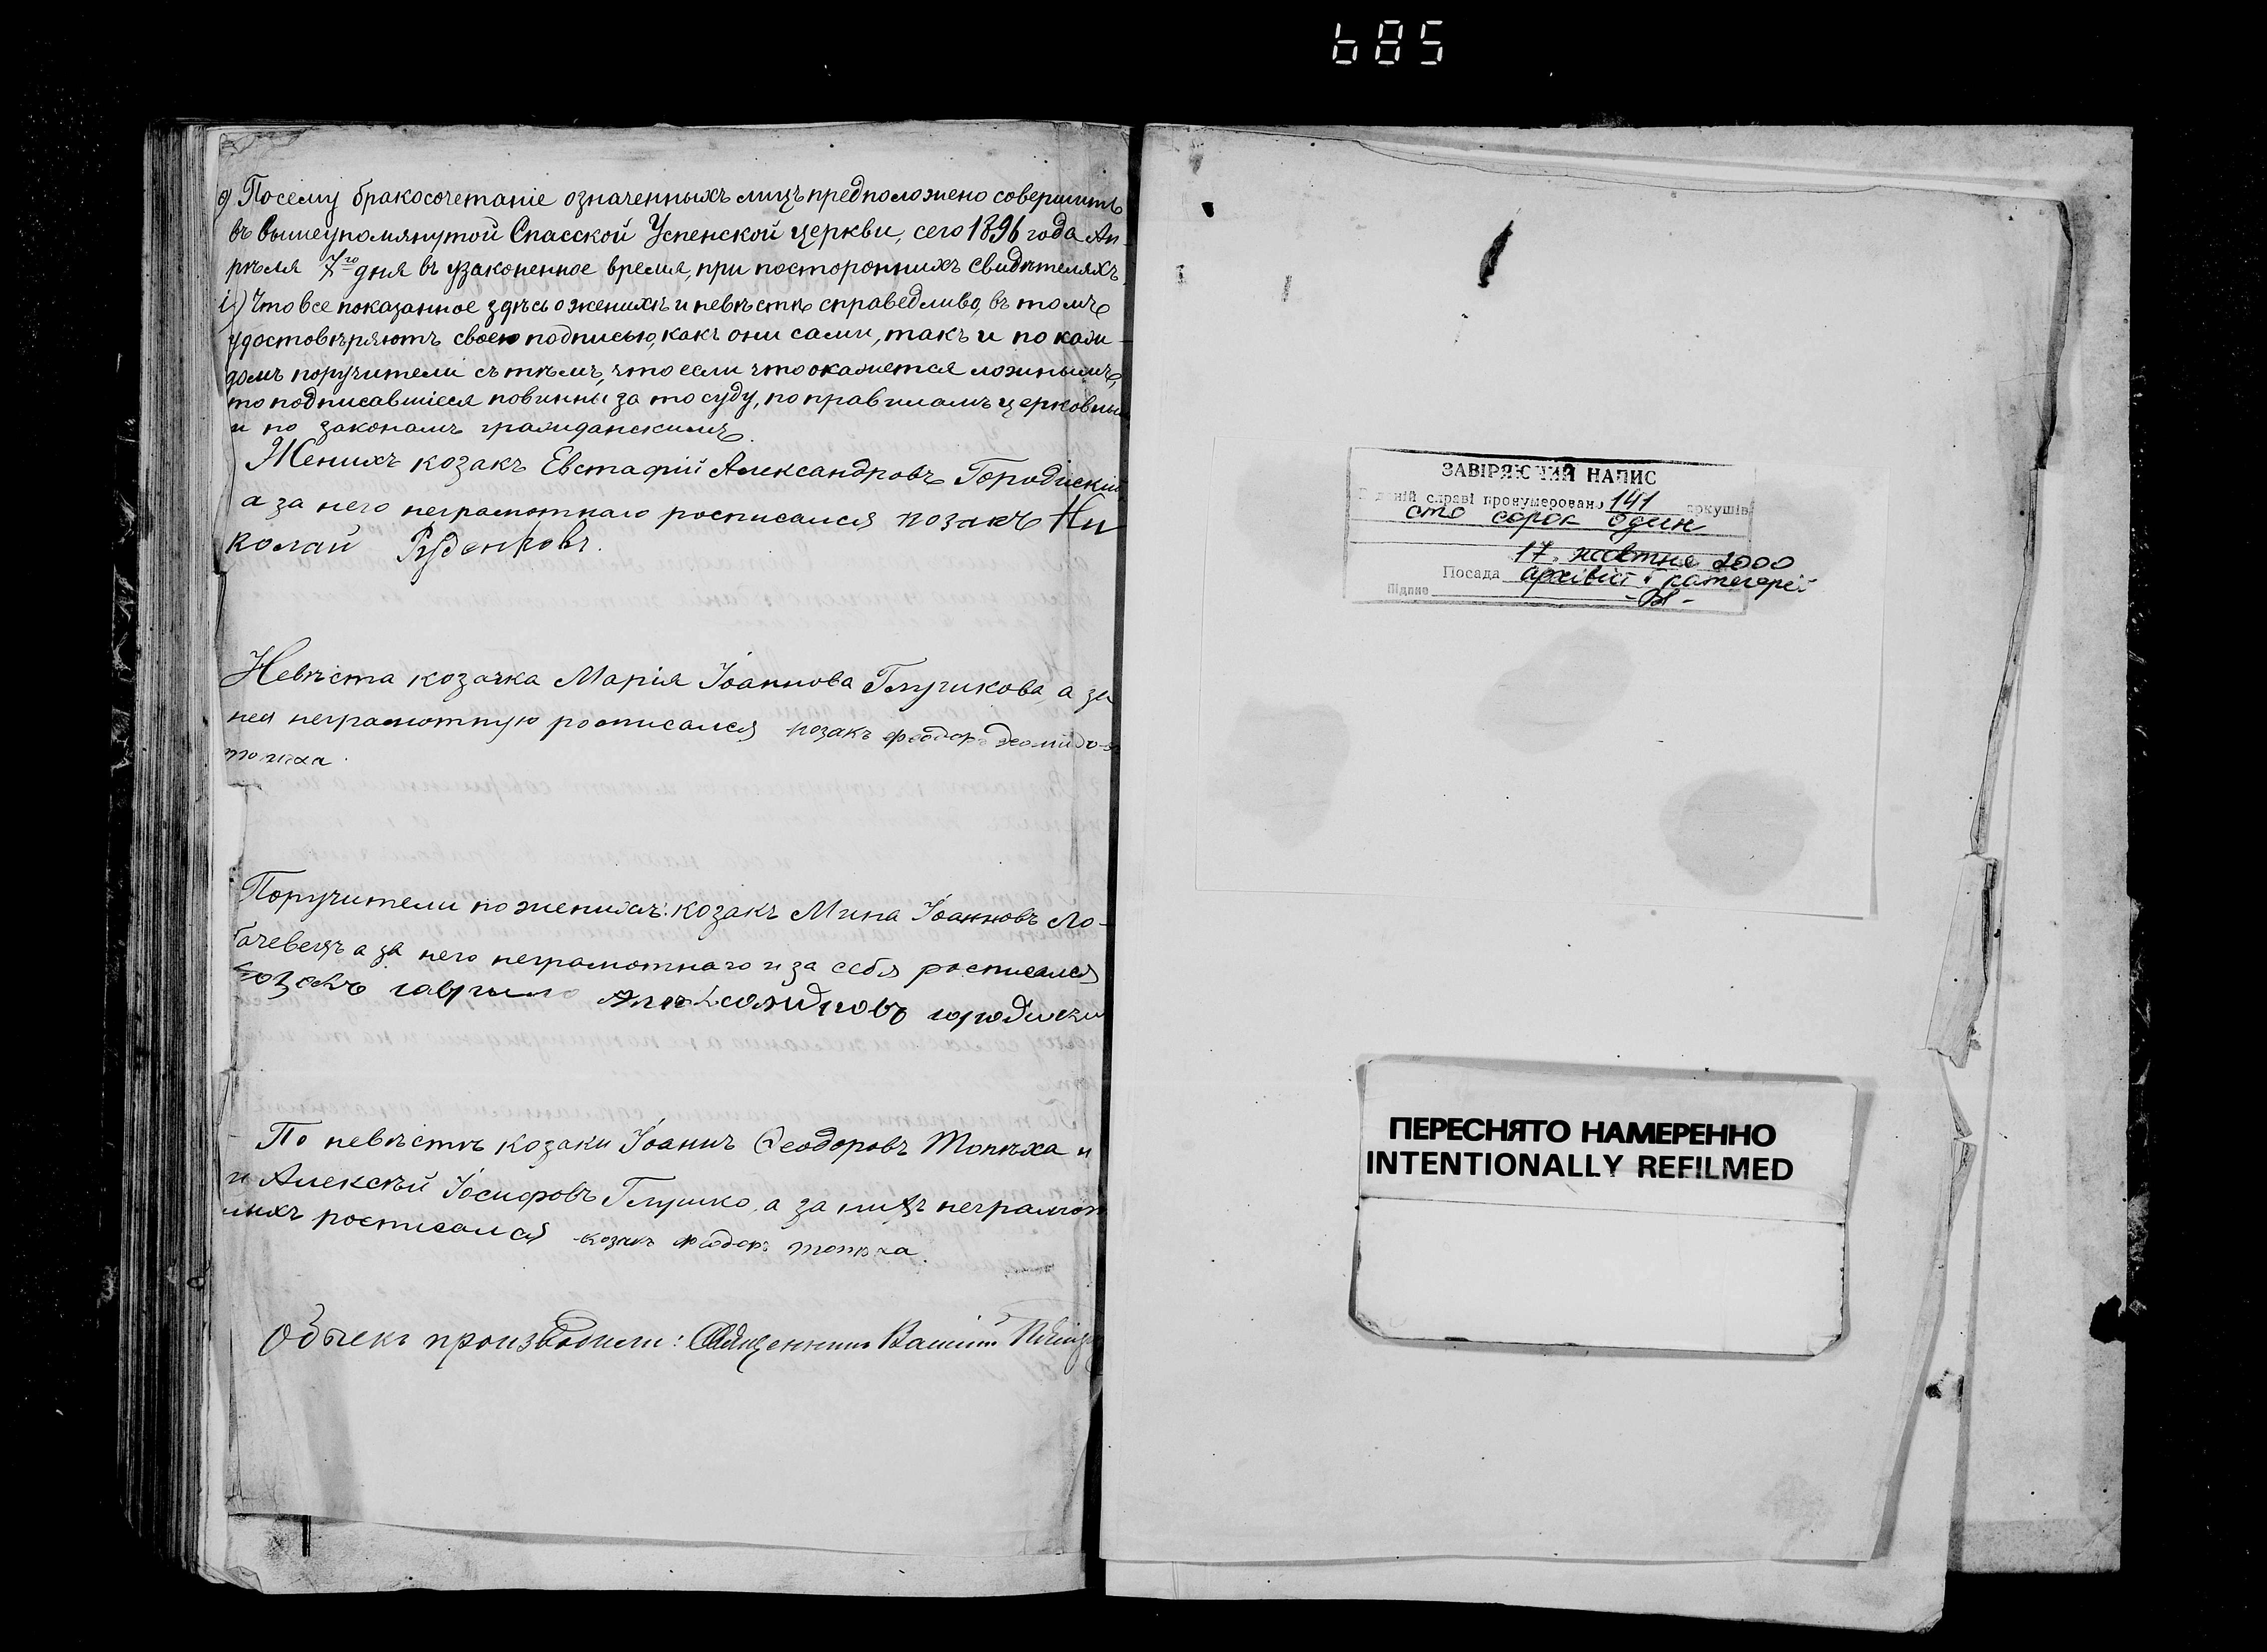 685
9) Посему бракосочетаніе означенныхъ лицъ предположено совершить
въ вышеупомянутой Спасской Успенской церкви, сего 1896 года Ап-
рѣля 7го дня въ узаконенное время, при постороннихъ свидѣтеляхъ.
i) Что все показанное здѣсь о женихѣ и невѣстѣ справедливо, въ томъ
удостовѣряютъ своею подписью, какъ они сами, такъ и по каж-
домъ поручители съ тѣмъ, что если что окажется ложнымъ,
то подписавшіеся повинны за то суду, по правиламъ церковным
и по законамъ гражданскимъ.
Женихъ козакъ Евстафій Александровъ Городискій
а за него неграмотнаго росписался козакъ Ни
колай Руденковъ.
Невѣста козачка Марія Іоаннова Глушкова, а за
нея неграмотную росписался козакъ Федоръ
топѣха.
Поручители по женихѣ: козакъ Мина Іоанновъ Ло-
бачевецъ а за него неграмотнаго и за себя росписался
козакъ гаврило Александровъ городиски
По невѣстѣ козаки Іоаннъ Ѳеодоровъ Топѣха и
и Алексѣй Іосифовъ Глушко, а за нихъ неграмот
ныхъ росписался козакъ Федоръ топѣха.
Обыскъ производили: Священникъ
ЗАВІРЯЮЧИЙ НАПИС
В даній справі пронумеровано 141 аркушів
сто сорок один
17 жовтня 2000
Посада архівіст категорії
Підпис
ПЕРЕСНЯТО НАМЕРЕННО
INTENTIONALLY REFILMED